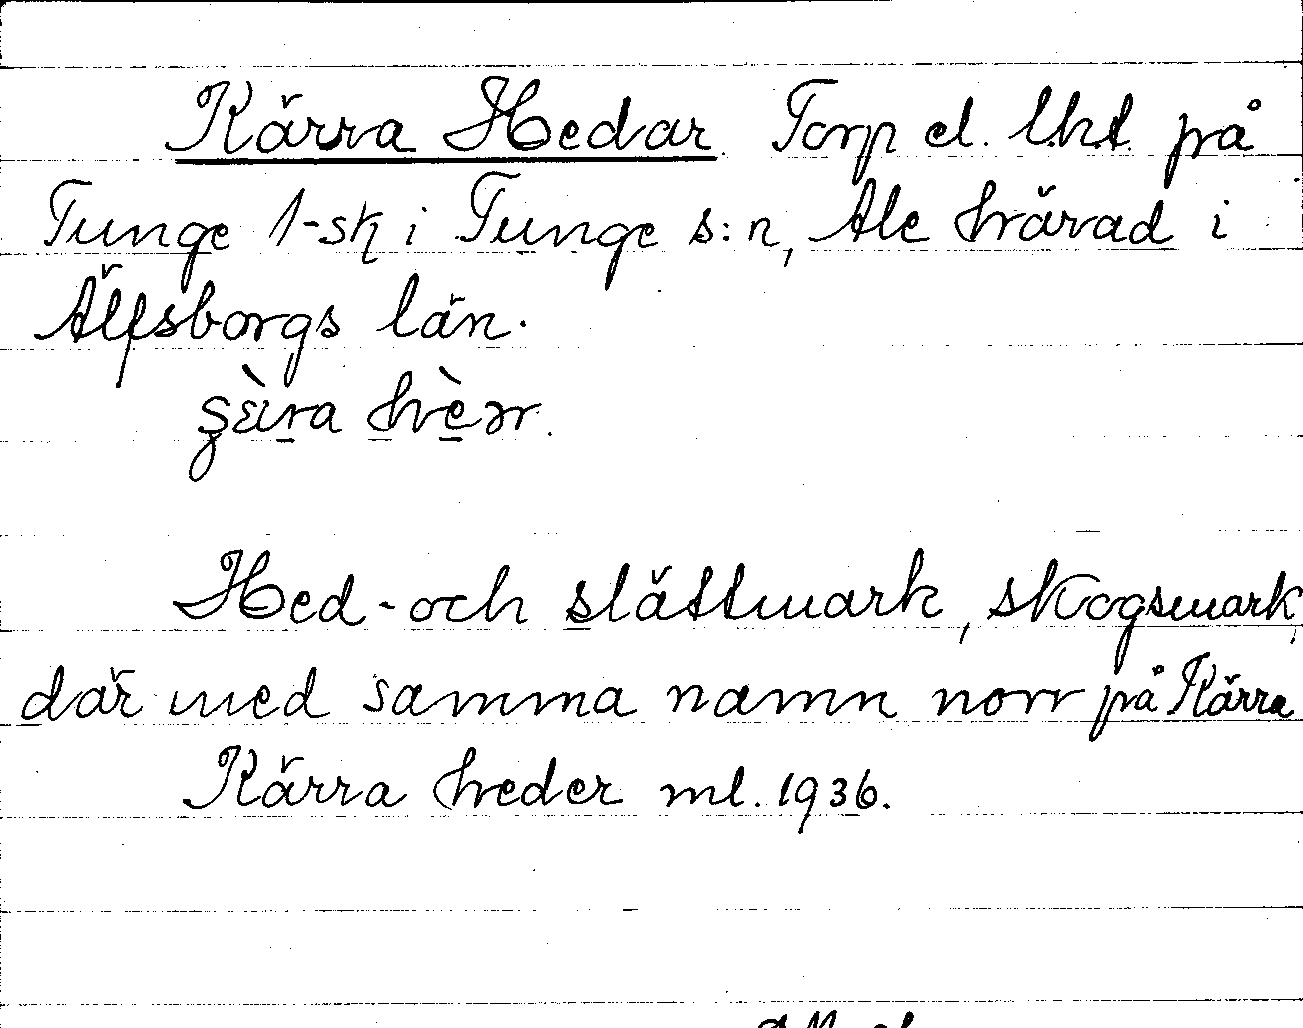 Kärra Hedar. Torp el. lht. på
Tunge 1-sk i Tunge s:n, Ale härad i
Älfsborgs län.
hèər.
Hed- och slättmark, skogsmark,
där med samma namn norr på Kärra
Kärra heder ml. 1936.